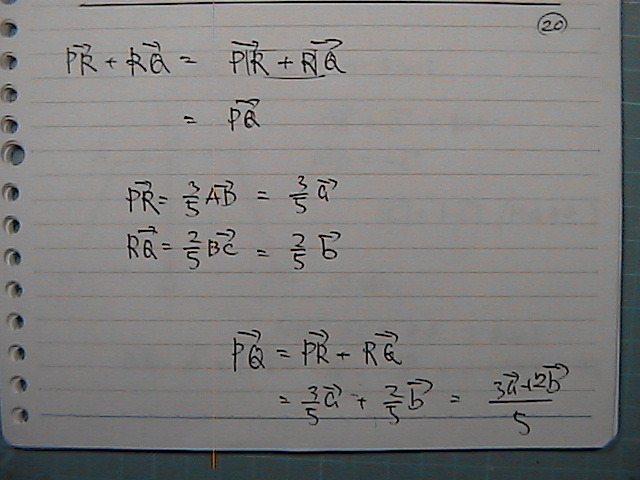 20
PR→ + RQ→ = PR→ + RQ→
= PQ→
PR→ = 3/5 AB→ = 3/5 a→
RQ→ = 2/5 BC→ = 2/5 b→
PQ→ = PR→ + RQ→
= 3/5 a→ + 2/5 b→ = (3a→ + 2b→)/5